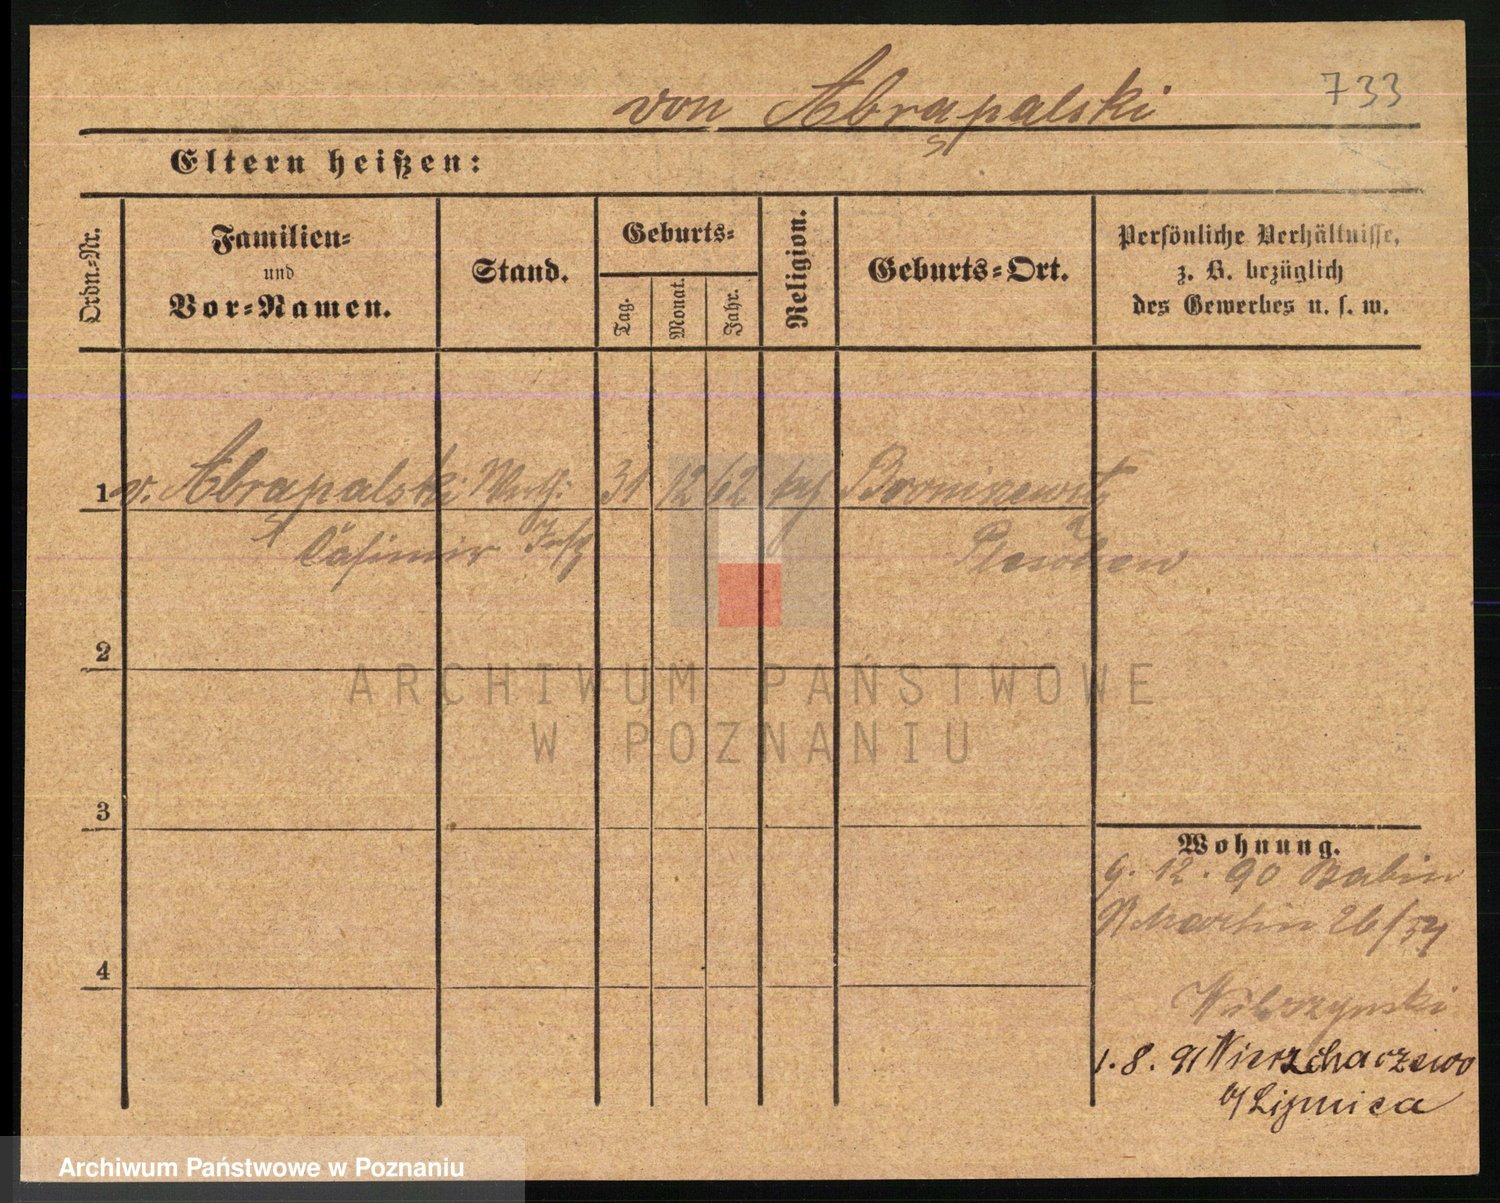 733
von Abrapalski
s
Eltern heißen:
Ordn.=Nr.
Familien=
und
Vor=Namen.
Stand.
Geburts=
Tag.
Monat.
Jahr.
Religion.
Geburts=Ort.
Persönliche Verhältnisse,
z. B. bezüglich
des Gewerbes u. s. w.
1 v. Abrapalski 31 12 62
Casimir
2
3
4
Wohnung.
9. 12. 90
Martin 26/
1. 8. 91
Lipnica
ARCHIWUM PAŃSTWOWE
W POZNANIU
Archiwum Państwowe w Poznaniu